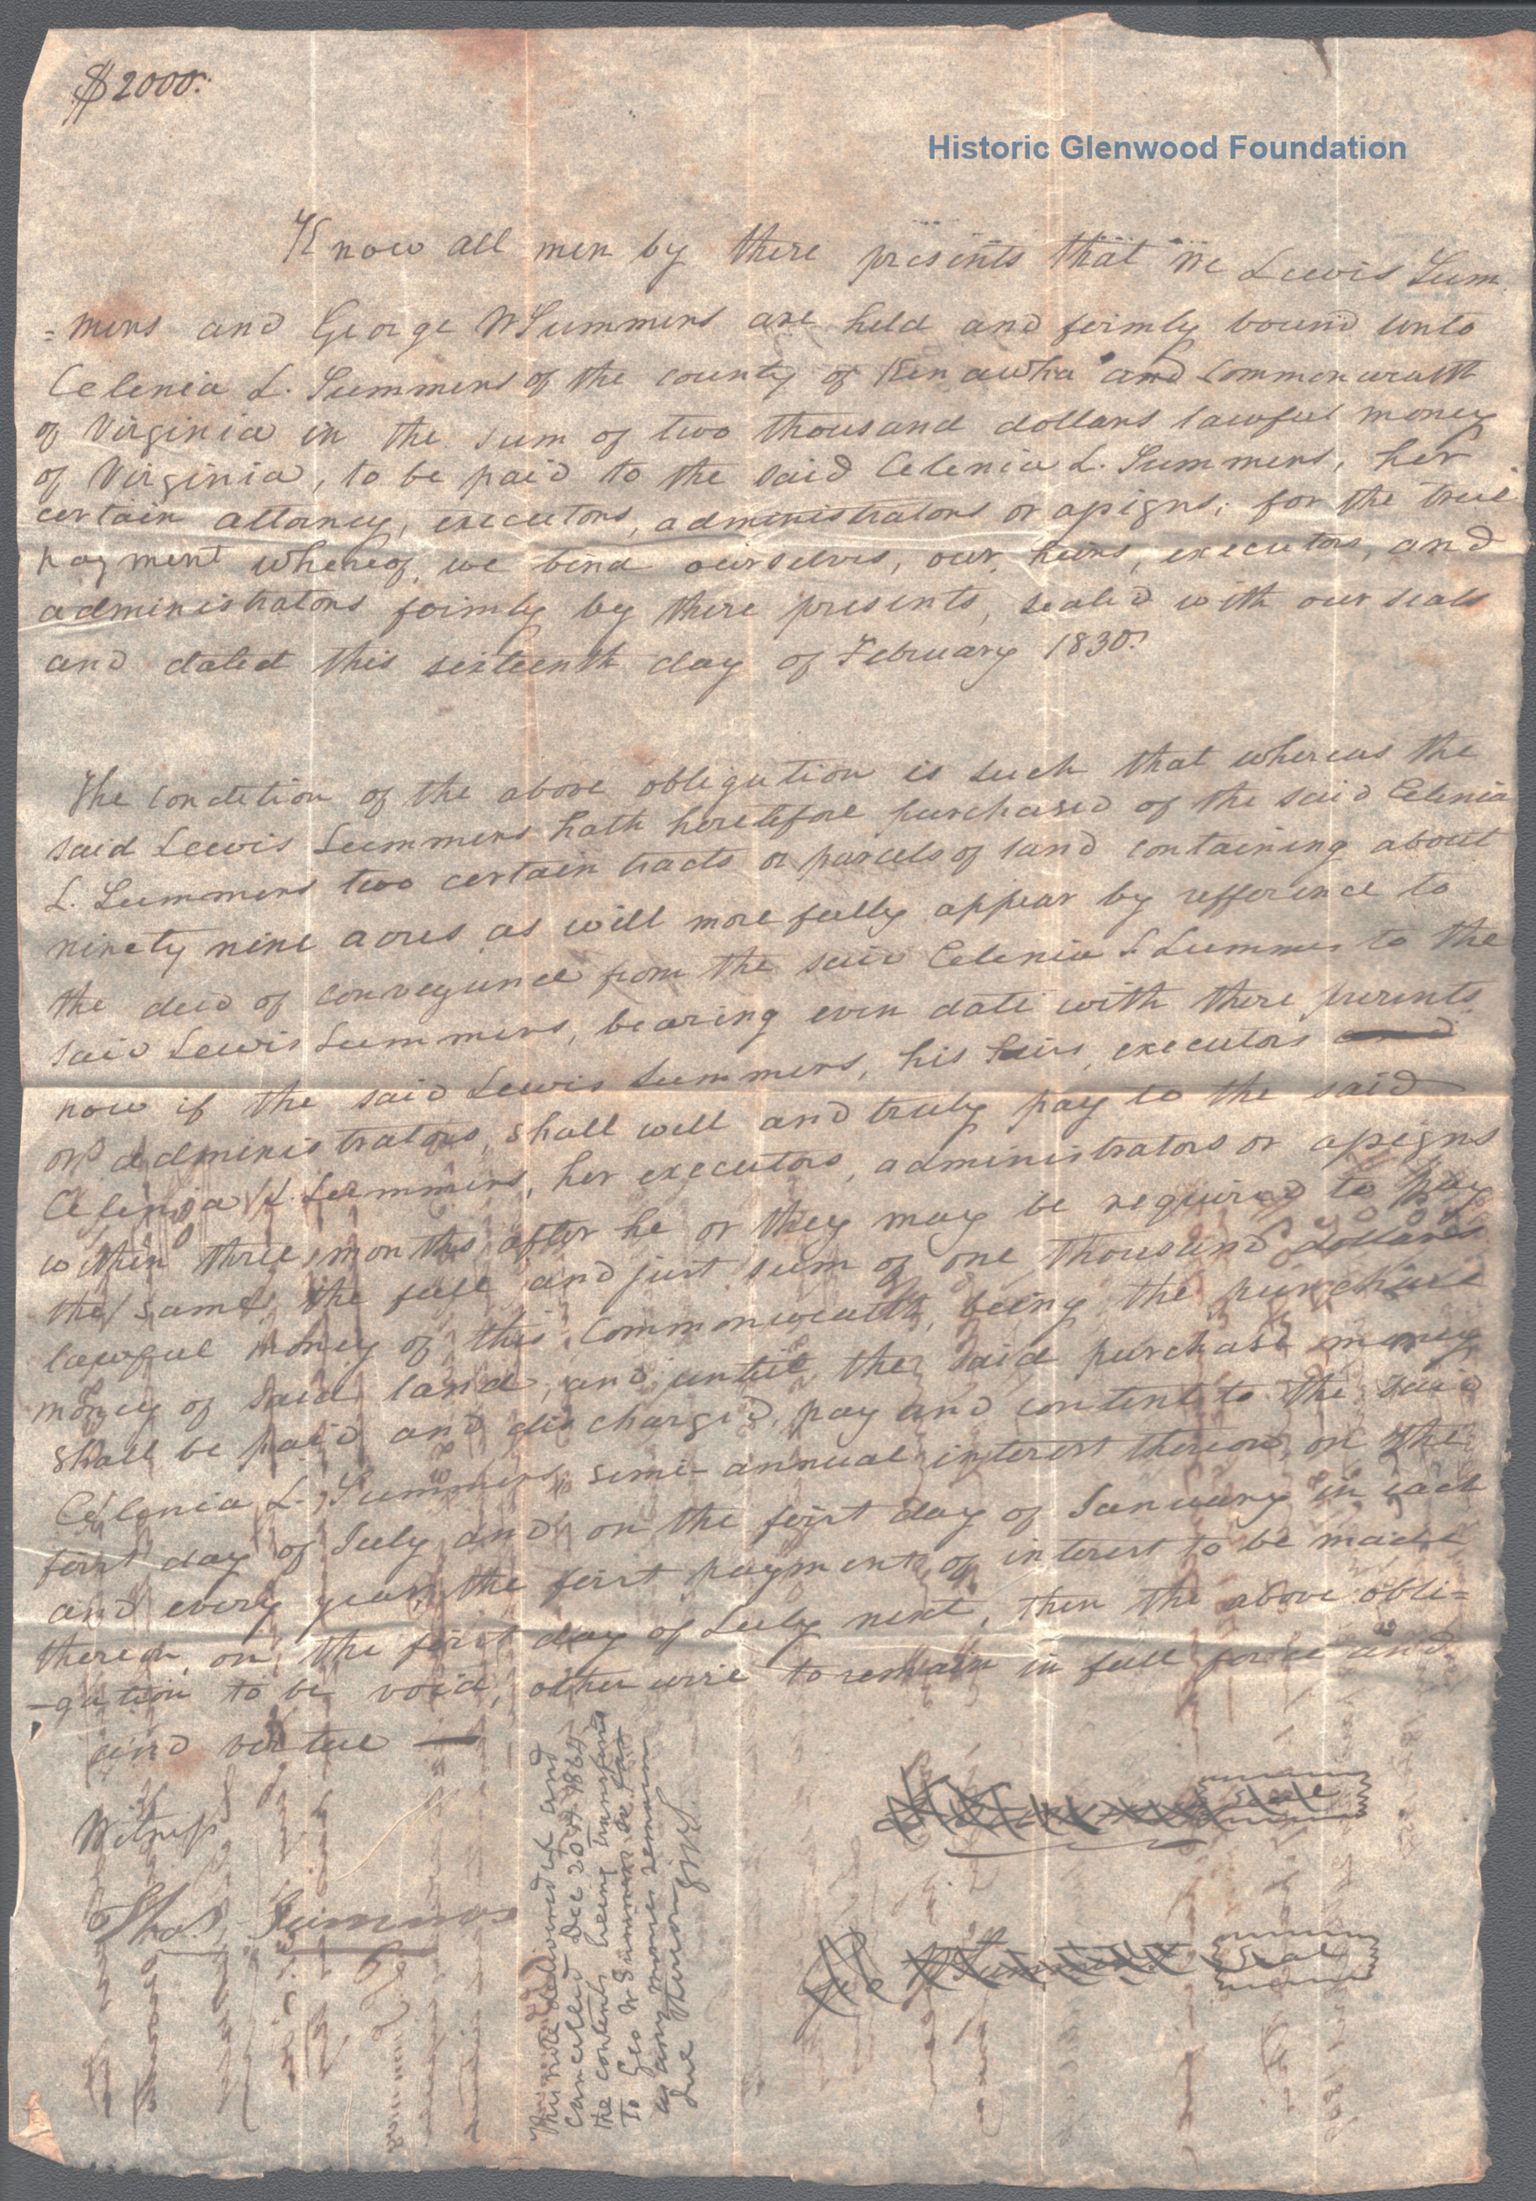 $2000.
Historic Glenwood Foundation
Know all men by these presents that we Lewis Sum
=mers and George W Summers are held and firmly bound unto
Celenia L. Summers of the county of Kenawha and Commonwealth
of Virginia in the sum of two thousand dollars lawful money
of Virginia, to be paid to the said Celenia L. Summers, her
certain attorney, executors, administrators or assigns; for the true
payment whereof, we bind ourselves, our heirs, executors, and
administrators firmly by these presents, sealed with our seals
and dated this sixteenth day of February 1830.
The condition of the above obligation is such that whereas the
said Lewis Summers hath heretofore purchased of the said Celenia
L. Summers two certain tracts or parcels of land containing about
ninety nine acres as will more fully appear by refference to
the deed of conveyance from the said Celenia L Summers to the
said Lewis Summers, bearing even date with these presents
now if the said Lewis Summers, his heirs, executors and
or administrators, shall well and truly pay to the said
Celenia L. Summers, her executors, administrators or assigns
within three months after he or they may be required to pay
the same the full and just sum of one thousand dollars
lawful money of this Commonwealth, being the purchase
money of said land, and until the said purchase money
shall be paid and discharged, pay and content to the said
Celenia L. Summers, semi-annual interest thereon, on the
first day of July and on the first day of January in each
and every year, the first payment of interest to be made
thereon, on the first day of July next, then the above obli=
-gation to be void, otherwise to remain in full force and
and virtue —
Witness
Thos Summers
Seal
Geo W Summers Seal
This note delivered up and
cancelled Dec 20th 1864
the contents being transfered
To Geo W Summers so far
as any monies remain
due thereon